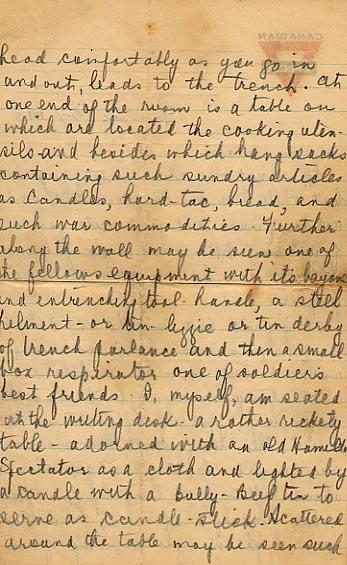 CANADIAN
head comfortably as you go in
and out, leads to the trench. At
one end of the room is a table on
which are located the cooking uten-
sils and besides which hang sacks
containing such sundry articles
as candles, hard-tac, bread, and
such war commodities. Further
along the wall may be seen one of
the fellows equipment with it's bayonet
and entrenching tool-handle, a steel
helment - or tin-lizzie or tin derby
of trench parlance and then a small
box respirator one of soldiers
best friends. I, myself, am seated
at the writing desk - a rather rickety
table - adorned with an old Hamilton
Spectator as a cloth and lighted by
a candle with a Bully-Beef tin to
serve as candle-stick. Scattered
around the table may be seen such